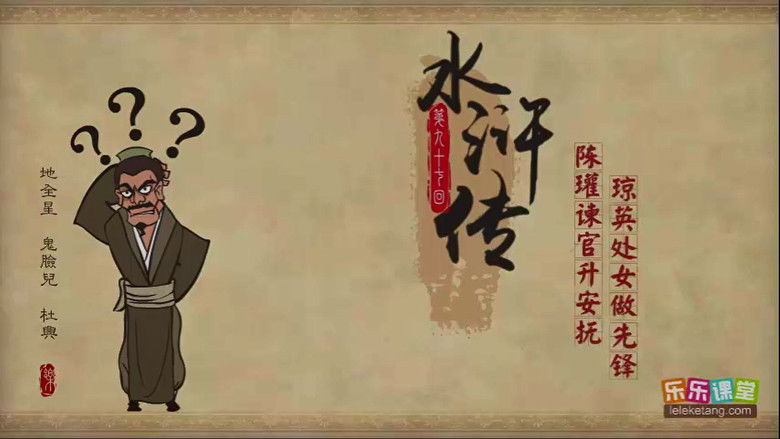 水浒传
第九十七回
陈瓘谏官升安抚
琼英处女做先锋
地全星 鬼臉兒 杜興
乐乐课堂
leleketang.com